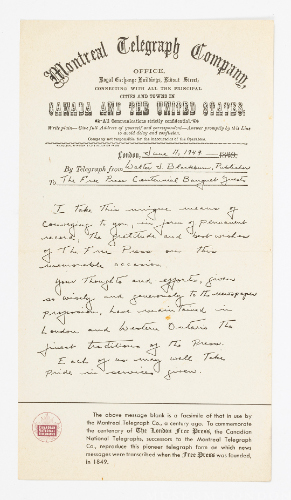 Montreal Telegraph Company,
OFFICE,
Royal Exchange Buildings, Ridout Street,
CONNECTING WITH ALL THE PRINCIPAL
CITIES AND TOWNS IN
CANADA AND THE UNITED STATES.
All Communications strictly confidential.
Write plain—Give full Address of yourself and correspondent—Answer promptly by this Line
to avoid delay and confusion.
Company not responsible for the
London, June 11, 1949
By Telegraph from Walter J. Blackburn, Publisher
To The Free Press Centennial Banquet Guests
I take this unique means of
conveying to you, in form of permanent
record, the gratitude and best wishes
of The Free Press on this
memorable occasion.
Your thoughts and efforts, given
so wisely and generously to the newspaper
profession, have maintained in
London and Western Ontario the
finest traditions of the Press.
Each of us may well take
pride in services given.
The above message blank is a facsimile of that in use by
the Montreal Telegraph Co., a century ago. To commemorate
the centenary of The London Free Press, the Canadian
National Telegraphs, successors to the Montreal Telegraph
Co., reproduce this pioneer telegraph form on which news
messages were transcribed when the Free Press was founded,
in 1849.